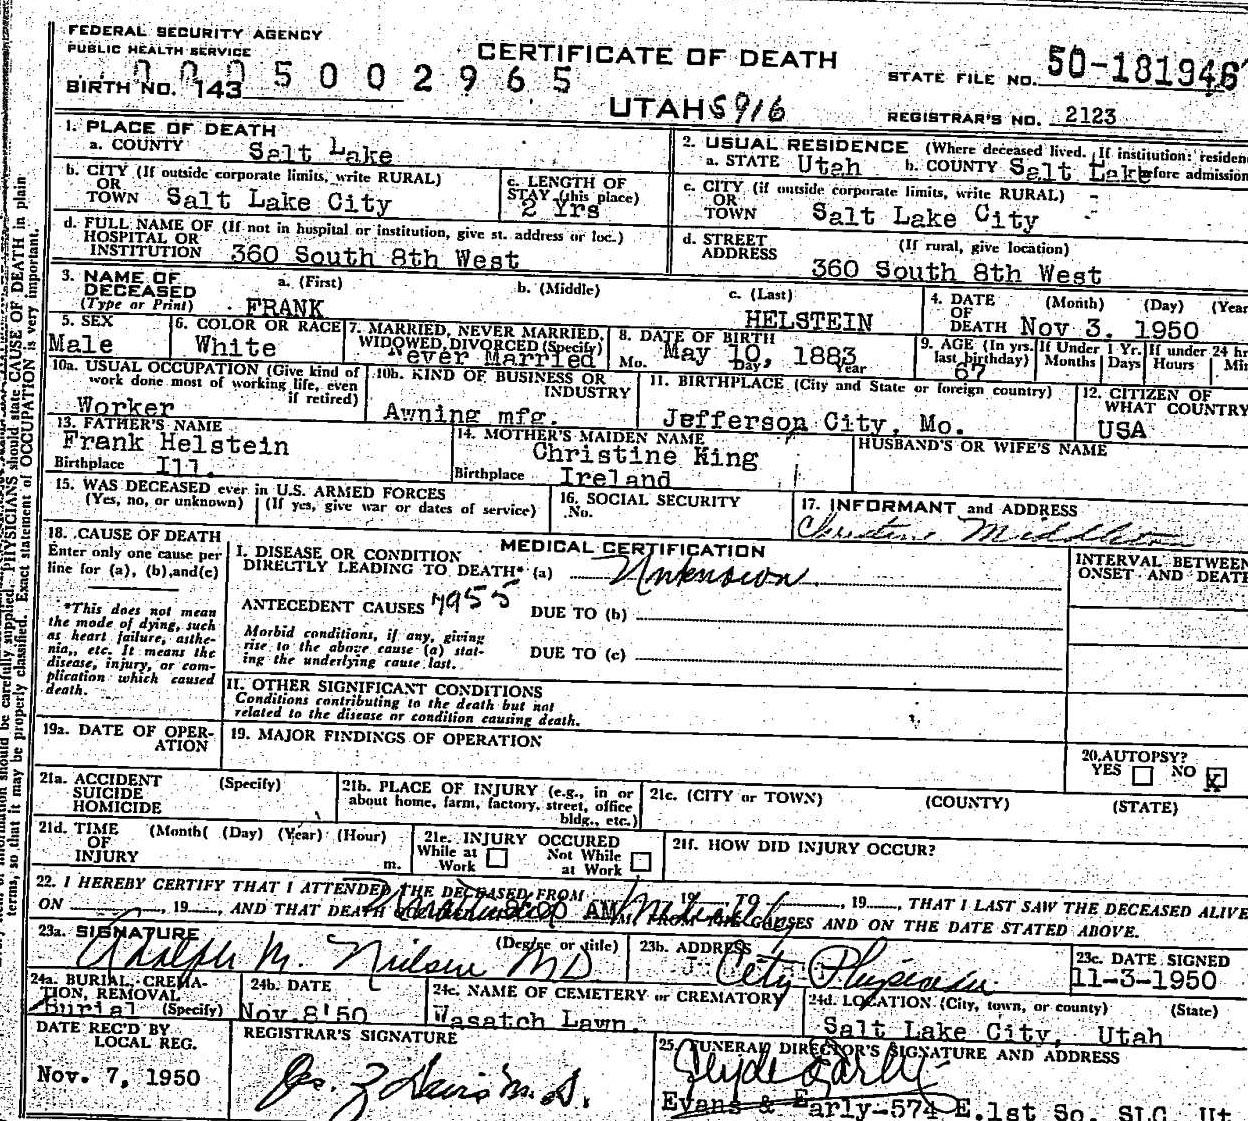 FEDERAL SECURITY AGENCY
PUBLIC HEALTH SERVICE
CERTIFICATE OF DEATH
STATE FILE NO. 50-181946
0005002965
BIRTH NO. 143
UTAH 5916
REGISTRAR'S NO. 2123
1. PLACE OF DEATH
a. COUNTY Salt Lake
2. USUAL RESIDENCE (Where deceased lived. If institution: residen
a. STATE Utah b. COUNTY Salt Lake efore admission
b. CITY (If outside corporate limits, write RURAL)
OR
TOWN Salt Lake City
c. LENGTH OF
STAY (this place)
2 Yrs
c. CITY (if outside corporate limits, write RURAL)
OR
TOWN Salt Lake City
d. FULL NAME OF (If not in hospital or institution, give st. address or loc.)
HOSPITAL OR
INSTITUTION 360 South 8th West
d. STREET (If rural, give location)
ADDRESS
360 South 8th West
3. NAME OF
DECEASED
(Type or Print)
a. (First) b. (Middle) c. (Last)
FRANK HELSTEIN
4. DATE (Month) (Day) (Year
OF
DEATH Nov 3. 1950
5. SEX
Male
6. COLOR OR RACE
White
7. MARRIED, NEVER MARRIED,
WIDOWED, DIVORCED (Specify)
Never Married
8. DATE OF BIRTH
May 10, 1883
Mo. Day Year
9. AGE (In yrs. last birthday)
67
If Under 1 Yr.
Months Days
If under 24 hr
Hours Min
10a. USUAL OCCUPATION (Give kind of
work done most of working life, even
if retired)
Worker
10b. KIND OF BUSINESS OR
INDUSTRY
Awning mfg.
11. BIRTHPLACE (City and State or foreign country)
Jefferson City, Mo.
12. CITIZEN OF
WHAT COUNTRY
USA
13. FATHER'S NAME
Frank Helstein
Birthplace Ill.
14. MOTHER'S MAIDEN NAME
Christine King
Birthplace Ireland
HUSBAND'S OR WIFE'S NAME
15. WAS DECEASED ever in U.S. ARMED FORCES
(Yes, no, or unknown) (If yes, give war or dates of service)
16. SOCIAL SECURITY
No.
17. INFORMANT and ADDRESS
Christine Middleton
18. CAUSE OF DEATH
Enter only one cause per
line for (a), (b), and (c)
*This does not mean
the mode of dying, such
as heart failure, asthe-
nia, etc. It means the
disease, injury, or com-
plication which caused
death.
MEDICAL CERTIFICATION
I. DISEASE OR CONDITION
DIRECTLY LEADING TO DEATH* (a) Unknown
ANTECEDENT CAUSES 7955 DUE TO (b)
Morbid conditions, if any, giving
rise to the above cause (a) stat-
ing the underlying cause last.
DUE TO (c)
II. OTHER SIGNIFICANT CONDITIONS
Conditions contributing to the death but not
related to the disease or condition causing death.
INTERVAL BETWEEN
ONSET AND DEATH
19a. DATE OF OPER-
ATION
19. MAJOR FINDINGS OF OPERATION
20. AUTOPSY?
YES NO X
21a. ACCIDENT (Specify)
SUICIDE
HOMICIDE
21b. PLACE OF INJURY (e.g., in or
about home, farm, factory, street, office
bldg., etc.)
21c. (CITY or TOWN) (COUNTY) (STATE)
21d. TIME (Month( (Day) (Year) (Hour)
OF
INJURY m.
21e. INJURY OCCURED
While at Work Not While at Work
21f. HOW DID INJURY OCCUR?
22. I HEREBY CERTIFY THAT I ATTENDED THE DECEASED FROM 19 TO , 19 , THAT I LAST SAW THE DECEASED ALIVE
ON , 19 , AND THAT DEATH 8:00 AM M. FROM THE CAUSES AND ON THE DATE STATED ABOVE.
23a. SIGNATURE (Degree or title)
Adolph M. Nielsen MD
23b. ADDRESS
City Physician
23c. DATE SIGNED
11-3-1950
24a. BURIAL, CREMA-
TION, REMOVAL
(Specify)
Burial
24b. DATE
Nov.8'50
24c. NAME OF CEMETERY or CREMATORY
Wasatch Lawn.
24d. LOCATION (City, town, or county) (State)
Salt Lake City, Utah
DATE REC'D BY
LOCAL REG.
Nov. 7, 1950
REGISTRAR'S SIGNATURE
25. FUNERAL DIRECTOR'S SIGNATURE AND ADDRESS
Clyde Early
Evans & Early-574 E.1st So. SLC. Ut
should be carefully supplied. PHYSICIANS should state CAUSE OF DEATH in plain
terms, so that it may be properly classified. Exact statement of OCCUPATION is very important.